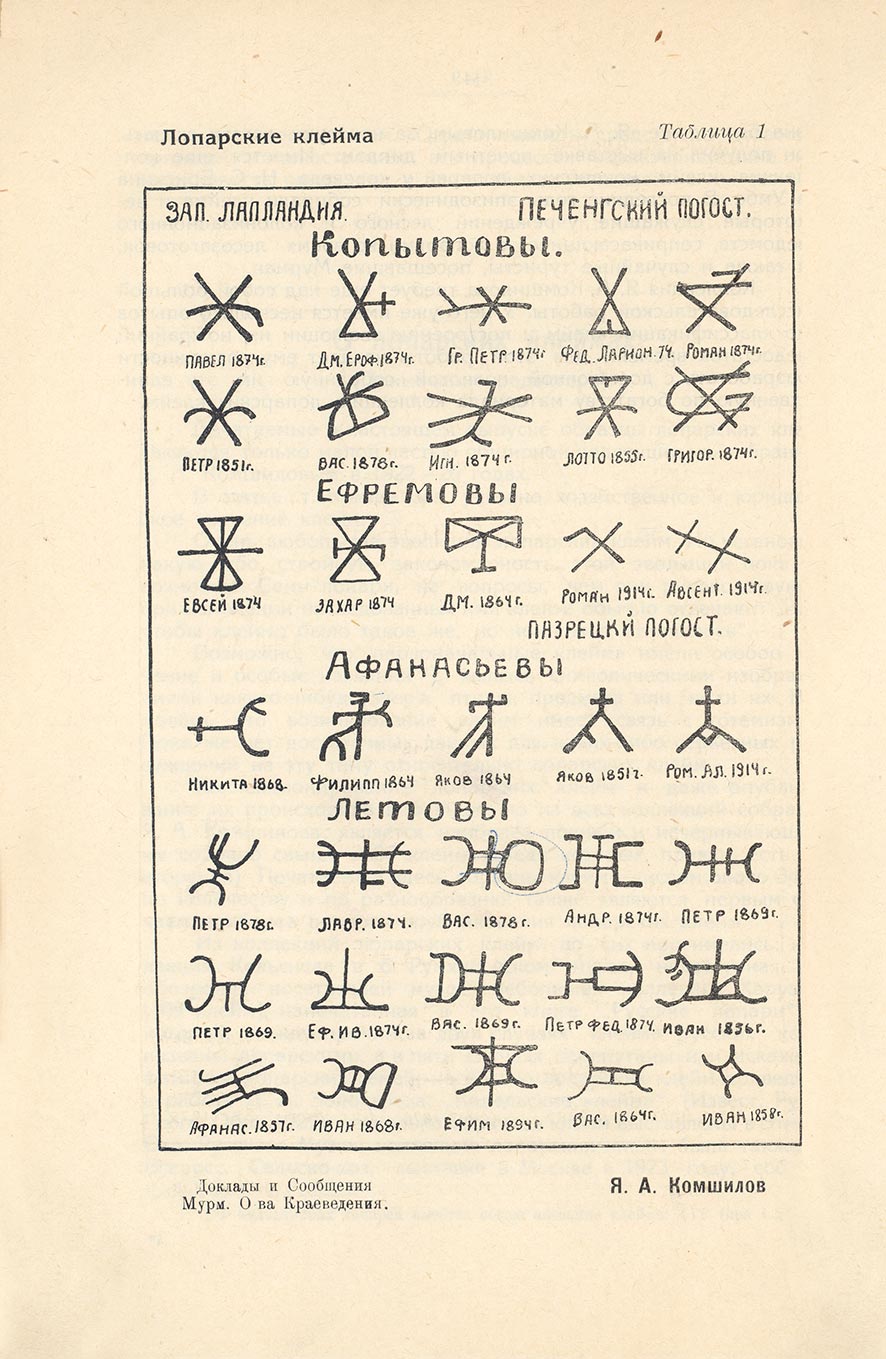 Лопарские клейма
Таблица 1
ЗАП. ЛАПЛАНДИЯ. ПЕЧЕНГСКИЙ ПОГОСТ.
КОПЫТОВЫ.
ПАВЕЛ 1874г. ДМ. ЕРОФ. 1874г. ГР. ПЕТР 1874г ФЕД. ЛАРИОН. 74. РОМАН 1874г.
ПЕТР 1851г. ВАС. 1878г. ИГН. 1874г. ЛОТТО 1855г. ГРИГОР. 1874г.
ЕФРЕМОВЫ
ЕВСЕЙ 1874 ЗАХАР 1874 ДМ. 1864г. РОМАН 1914г. АВСЕНТ. 1914г.
ПАЗРЕЦКЙ ПОГОСТ.
АФАНАСЬЕВЫ
НИКИТА 1868. ФИЛИПП 1864 ЯКОВ 1864 ЯКОВ 1851г. РОМ. АЛ. 1914г.
ЛЕТОВЫ
ПЕТР 1878г. ЛАВР. 1874. ВАС. 1878г. АНДР. 1874г. ПЕТР 1869г.
ПЕТР 1869. ЕФ. ИВ. 1874г. ВАС. 1869г. ПЕТР ФЕД. 1874. ИВАН 1856г.
АФАНАС. 1857г. ИВАН 1868г. ЕФИМ 1894г. ВАС. 1864г. ИВАН 1858г.
Доклады и Сообщения
Мурм. О ва Краеведения.
Я. А. Комшилов